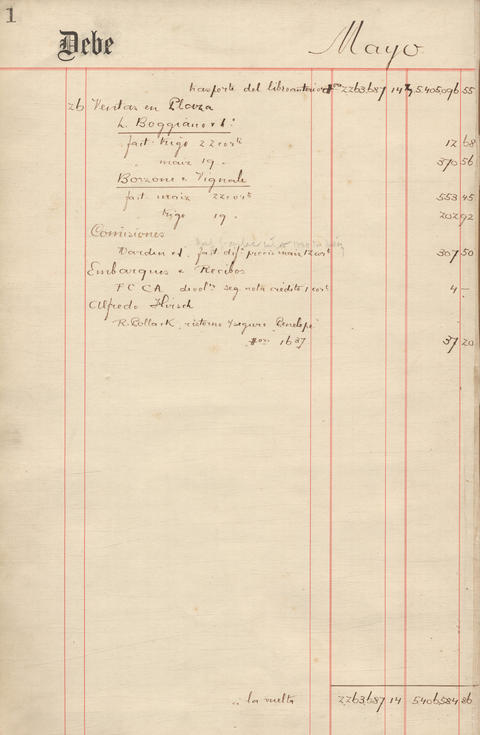 1
Debe Mayo
Trasporte del libro anterior 2263,687 14 5.405,096 55
26 Ventas en Plaza
L. Boggiano
fact. trigo 22 cort 12 68
maiz 19 370 56
Borzone e Vignale
fact. maiz 22 cort 553 45
trigo 19. 202 92
Comisiones
fact. dif. precio maiz 12 cort 307 50
Embarques e Recibos
F C C A devol. seg. nota crédito 1 cort 4 –
Alfredo Hirsch
R. Pollack ristorno s/seguro "Penelope"
16 37 37 20
la vuelta 2,263,687 14 5406,584 86